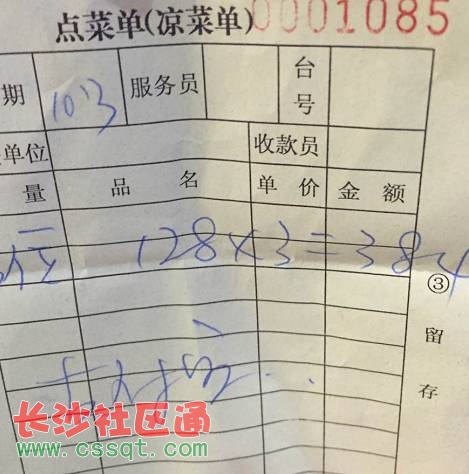 点菜单(凉菜单) 0001085
期 10.3 服务员 台号
单位 收款员
量 品名 单价 金额
128×3=384
③留存
长沙社区通
www.cssqt.com